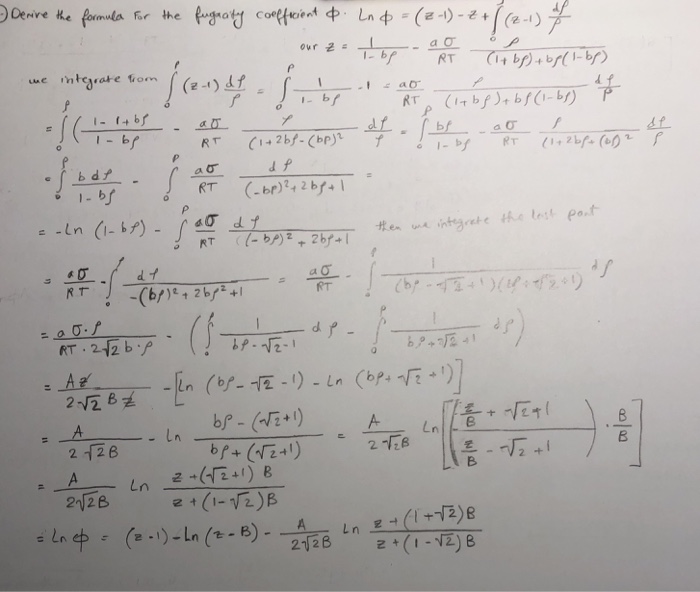 Derive the formula For the fugacity coefficient Φ. Ln Φ = (z-1) - z + ∫₀^ρ (z-1) dρ/ρ
our z = 1/(1-bρ) - aσ/RT ρ/((1+bρ)+bρ(1-bρ))
we integrate from ∫₀^ρ (z-1) dρ/ρ = ∫₀^ρ 1/(1-bρ) -1 - aσ/RT ρ/((1+bρ)+bρ(1-bρ)) dρ/ρ
= ∫₀^ρ (1-1+bρ)/(1-bρ) - aσ/RT ρ/(1+2bρ-(bρ)²) dρ/ρ = ∫₀^ρ bρ/(1-bρ) - aσ/RT ρ/(1+2bρ-(bρ)² dρ/ρ
= ∫₀^ρ b dρ/(1-bρ) - ∫₀^ρ aσ/RT dρ/((-bρ)²+2bρ+1) =
= -Ln (1-bρ) - ∫₀^ρ aσ/RT dρ/((-bρ)²+2bρ+1 then we integrate the last part
= aσ/RT - ∫₀^ρ dρ/(-(bρ)²+2bρ²+1) = aσ/RT - ∫₀^ρ 1/((bρ-√2+1)(bρ+√2+1)) dρ
= aσ.ρ/(RT.2√2 b.ρ) - (∫₀^ρ 1/(bρ-√2-1) dρ - ∫₀^ρ 1/(bρ+√2+1) dρ)
= Az/(2√2 Bz) - [Ln (bρ-√2-1) - Ln (bρ+√2+1)]
= A/(2√2B) - Ln (bρ-(√2+1))/(bρ+(√2+1)) = A/(2√2B) Ln[((z/B+√2+1)/(z/B-√2+1)) . B/B]
= A/(2√2B) Ln (z+(√2+1)B)/(z+(1-√2)B)
= Ln Φ = (z-1) - Ln (z-B) - A/(2√2B) Ln (z+(1+√2)B)/(z+(1-√2)B)